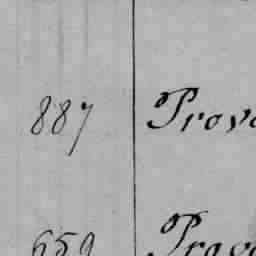 887 Prov
659 Prov